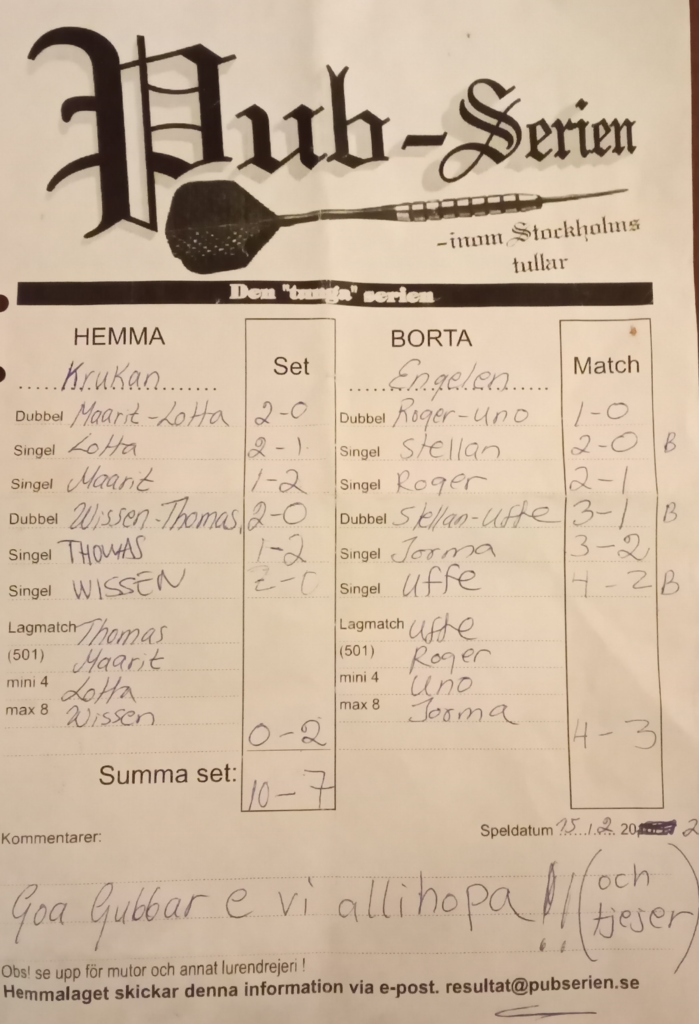 Pub-Serien
-inom Stockholms
tullar
Den "tunga" serien
HEMMA Set BORTA Match
.....Krukan....... .....Engelen.....
Dubbel Maarit-Lotta 2-0 Dubbel Roger-Uno 1-0
Singel Lotta 2-1 Singel Stellan 2-0 B
Singel Maarit 1-2 Singel Roger 2-1
Dubbel Wissen-Thomas 2-0 Dubbel Stellan-Uffe 3-1 B
Singel THOMAS 1-2 Singel Jorma 3-2
Singel WISSEN 2-0 Singel Uffe 4-2 B
Lagmatch Thomas Lagmatch Uffe
(501) Maarit (501) Roger
mini 4 Lotta mini 4 Uno
max 8 Wissen max 8 Jorma
0-2 4-3
Summa set: 10-7
Speldatum 15.12.20 2
Kommentarer:
Goa Gubbar e vi allihopa!!! (och
tjejer)
Obs! se upp för mutor och annat lurendrejeri !
Hemmalaget skickar denna information via e-post. resultat@pubserien.se